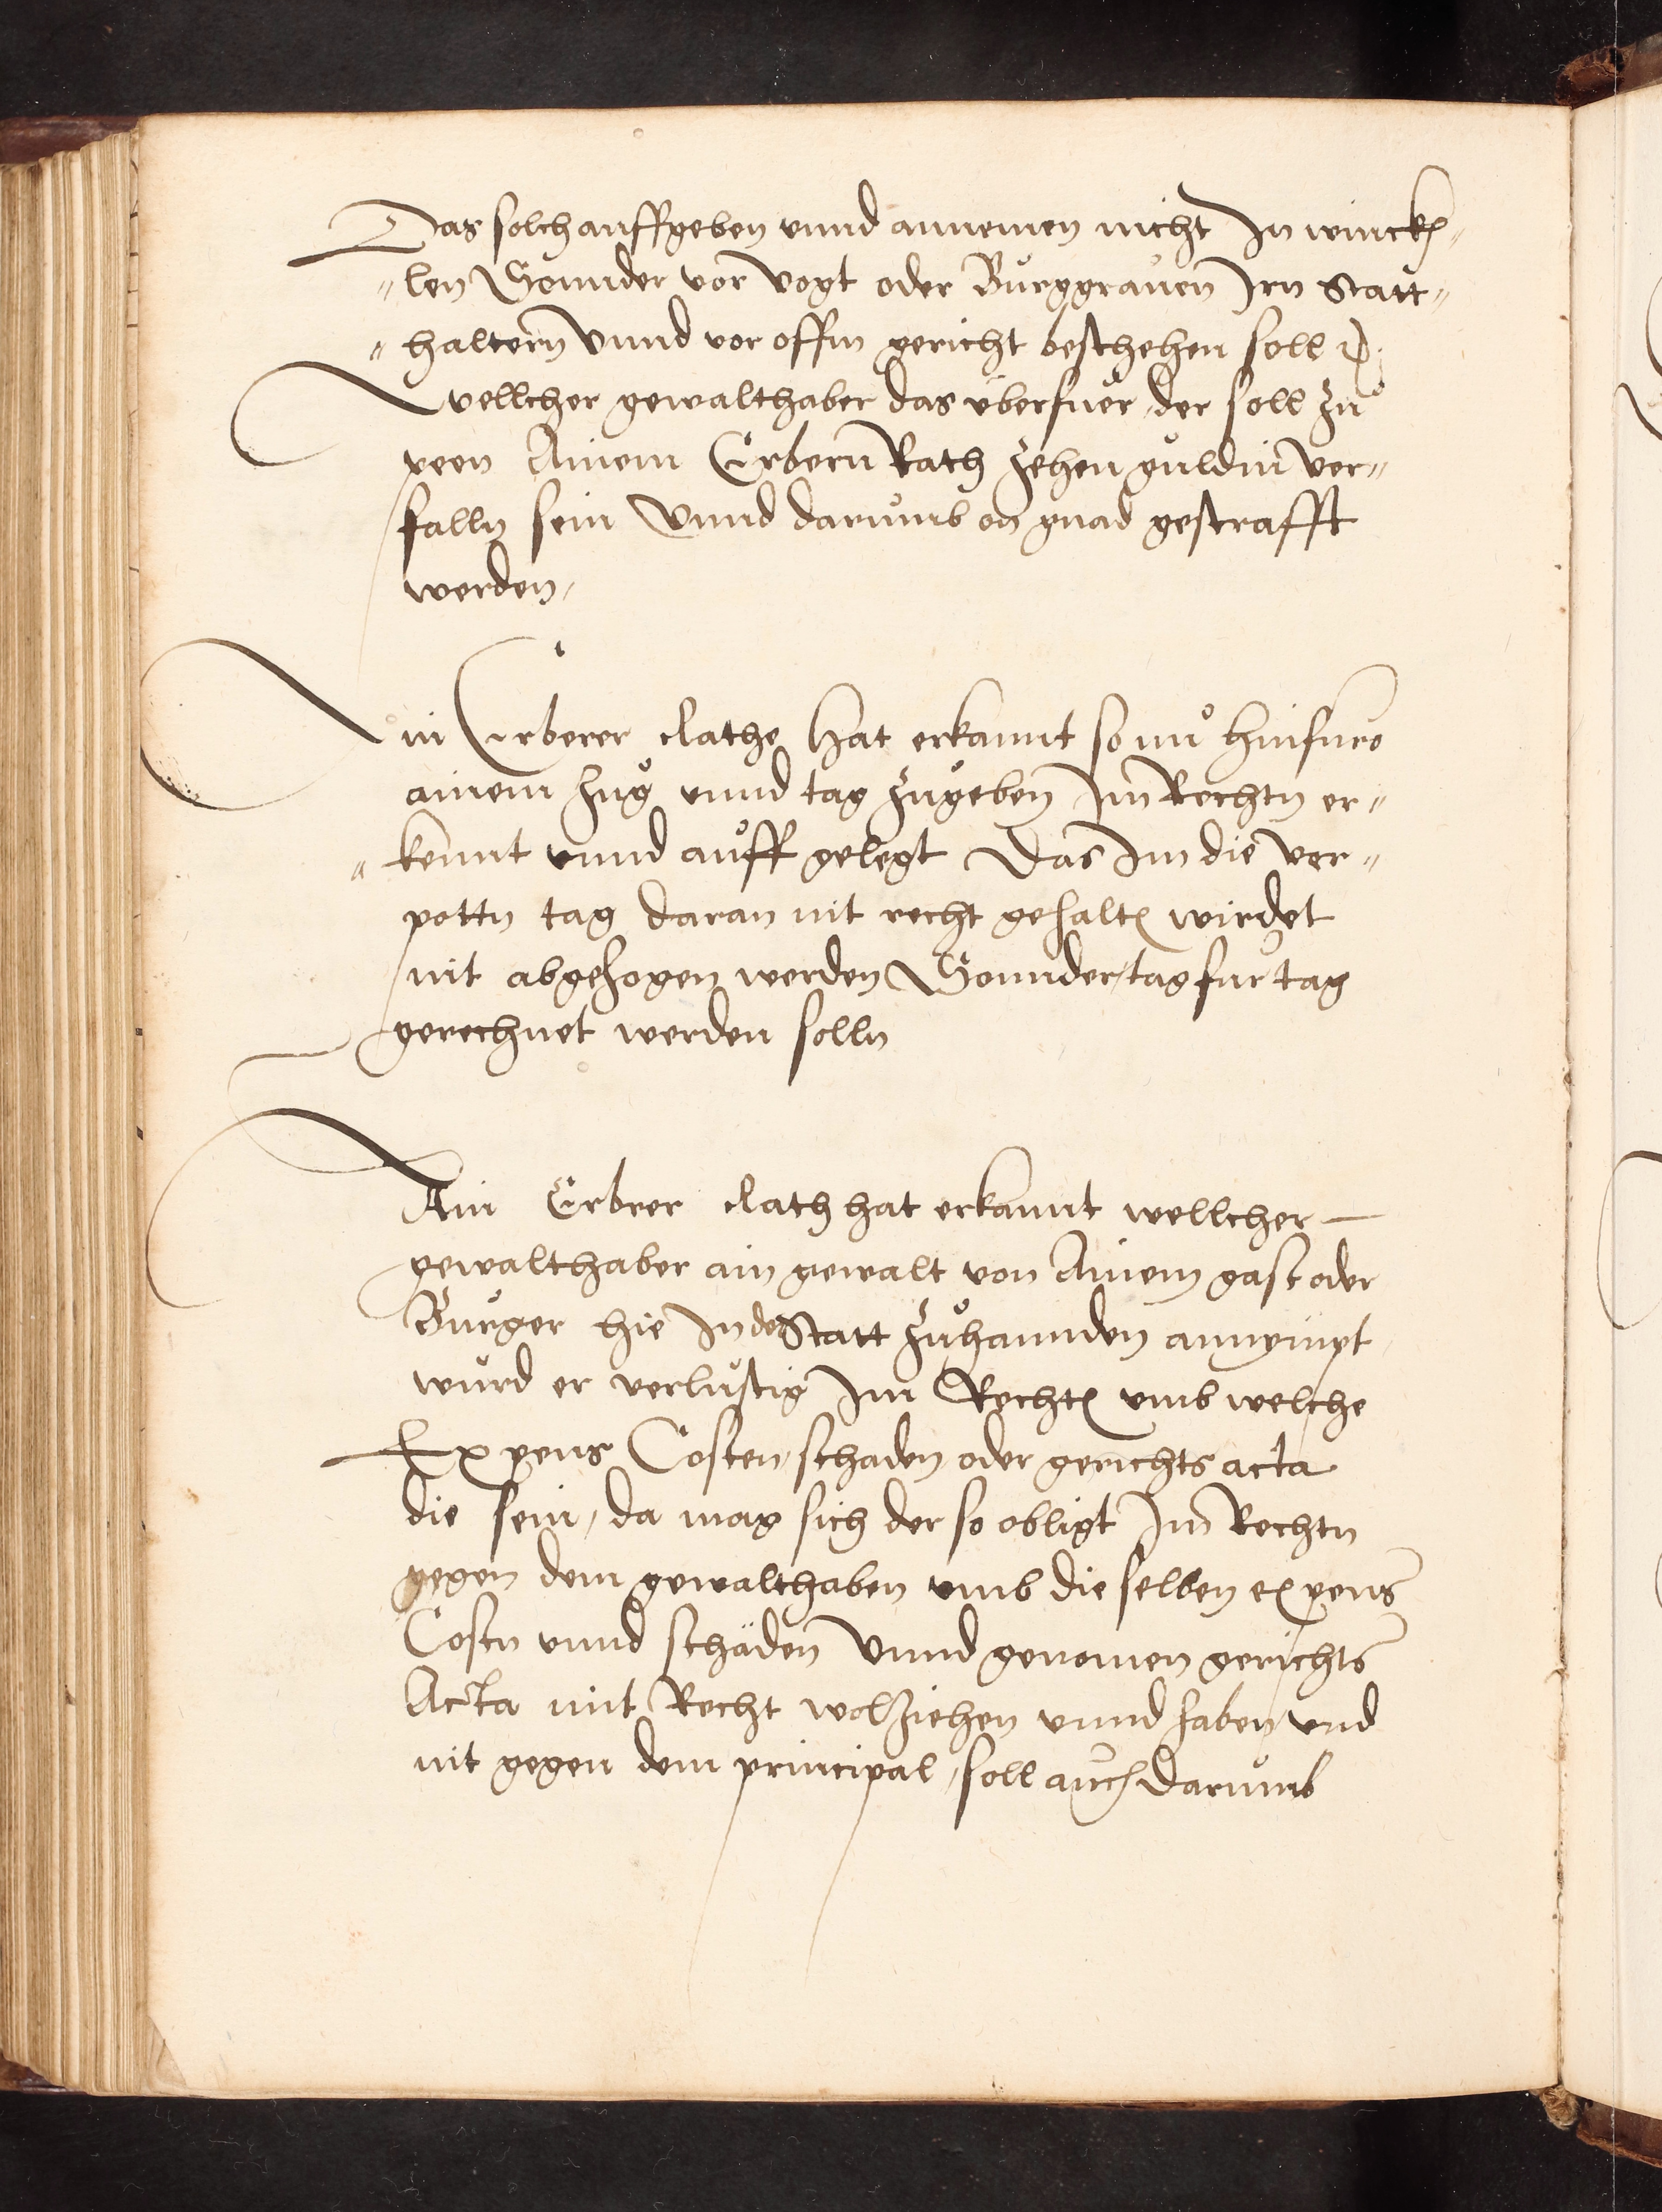 Das solch auffgeben vnnd annemen nicht In winckh⸗
⸗len Sonnder vor Vogt oder Burggrauen Irn Statt⸗
⸗haltern Vnnd vor offin gericht beschehen soll
Wellcher gewalthaber das überfuer, der soll zu
peen Ainem Erbern Rath zehen guldin ver⸗
falln sein Vnnd darumb on gnad gestrafft
werden,
Ain Erberer Rathe hat erkannt so nu hinfuro
ainem Zug vnnd tag zugeben Im Rechtn er⸗
⸗kennt vnnd auff gelegt Das Im die ver⸗
pottn tag daran nit recht gehalten wirdet
nit abgezogen werden Sonnder tag fur tag
gerechnet werden solln
Ain Erbrer Rath hat erkannt wellcher
gewalthaber ain gewalt von Ainem gast oder
Burger hie In der Statt zuhannden annympt
wurd er verlustig Im Rechten vmb welche
Expens Costen, schaden oder gerichts acta
die sein, da mag sich der so obligt Im Rechtn
gegen dem gewalthaben vmb die selben expens
Costn vnnd schäden Vnnd genomen gerichts
Acta mit Recht wolziehen vnnd haben, vnd
nit gegen dem principal, soll auch darumb